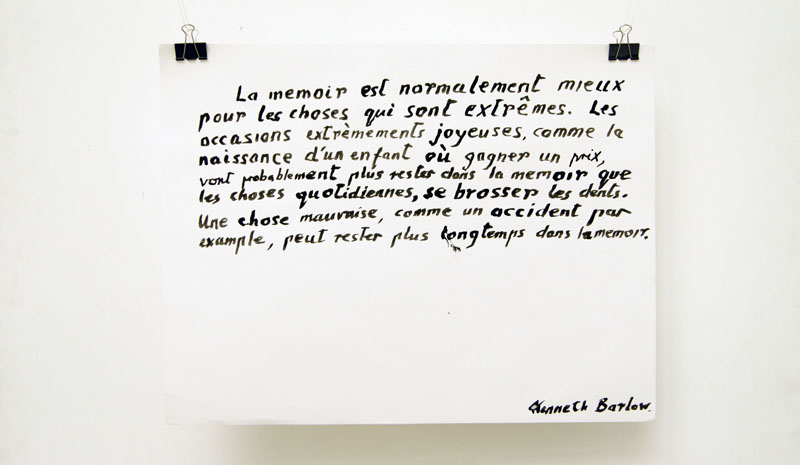 La memoir est normalement mieux
pour les choses qui sont extrêmes. Les
occasions extrèmements joyeuses, comme la
naissance d'un enfant où gagner un prix,
vont probablement plus rester dans la memoir que
les choses quotidiennes, se brosser les dents.
Une chose mauvaise, comme un accident par
example, peut rester plus longtemps dans la memoir.
Kenneth Barlow.